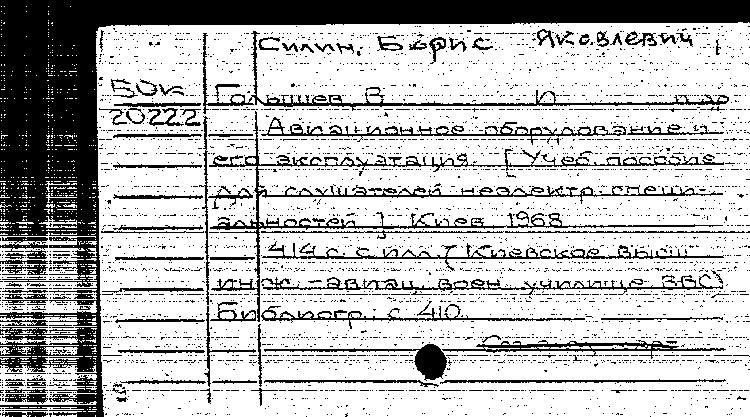 Силин, Борис Яковлевич
БОк Голышев, В И и др
20222 Авиационное оборудование и
его эксплуатация. [Учеб. пособие
для слушателей неэлектр. специ-
альностей] Киев 1968
414 с. с илл. (Киевское высш
инж.-авиац. воен. училище ВВС)
Библиогр.: с 410.